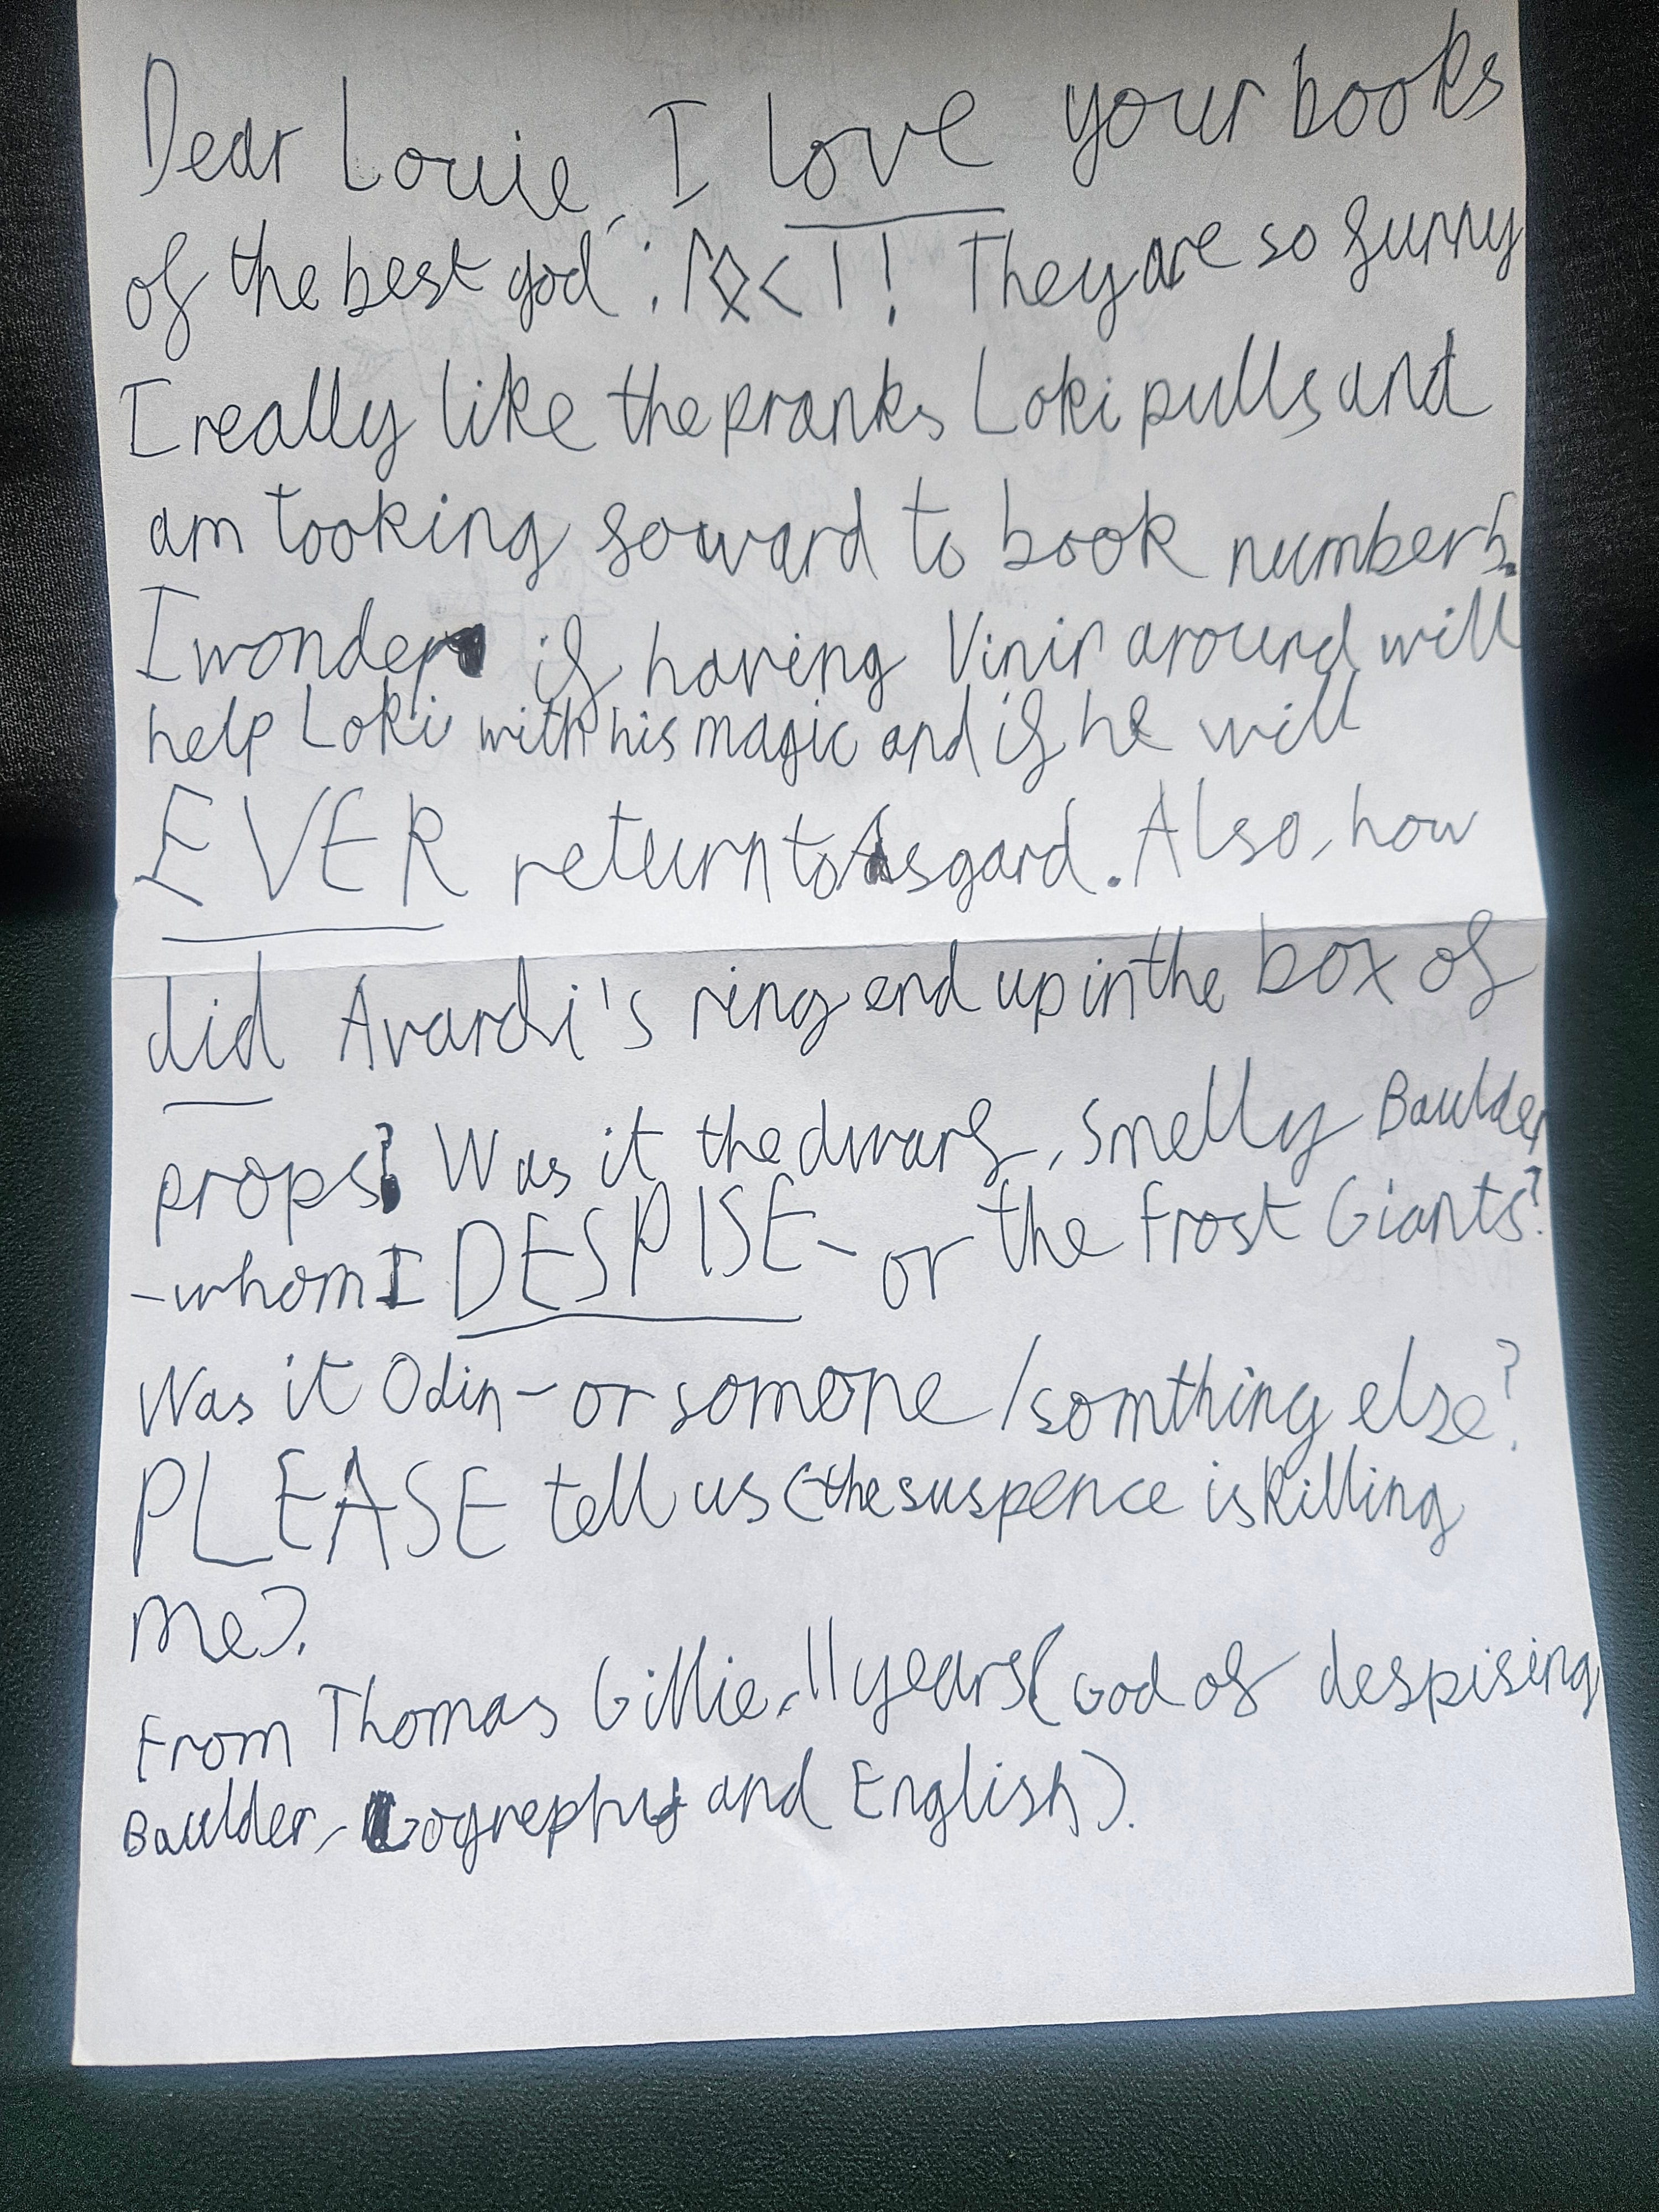 Dear Louie, I love your books
of the best god: ᛚᛟᚲᛁ! They are so funny
I really like the pranks Loki pulls and
am looking foward to book number 5.
I wonder if having Vinir around will
help Loki with his magic and if he will
EVER return to Asgard. Also, how
did Avardi's ring end up in the box of
props? Was it the dwarf, Smelly Baulder
-whom I DESPISE- or the Frost Giants?
Was it Odin - or somone / somthing else?
PLEASE tell us (the suspence is killing
me).
From Thomas Gillie, 11 years (God of despising
Baulder, Gogrephy and English).